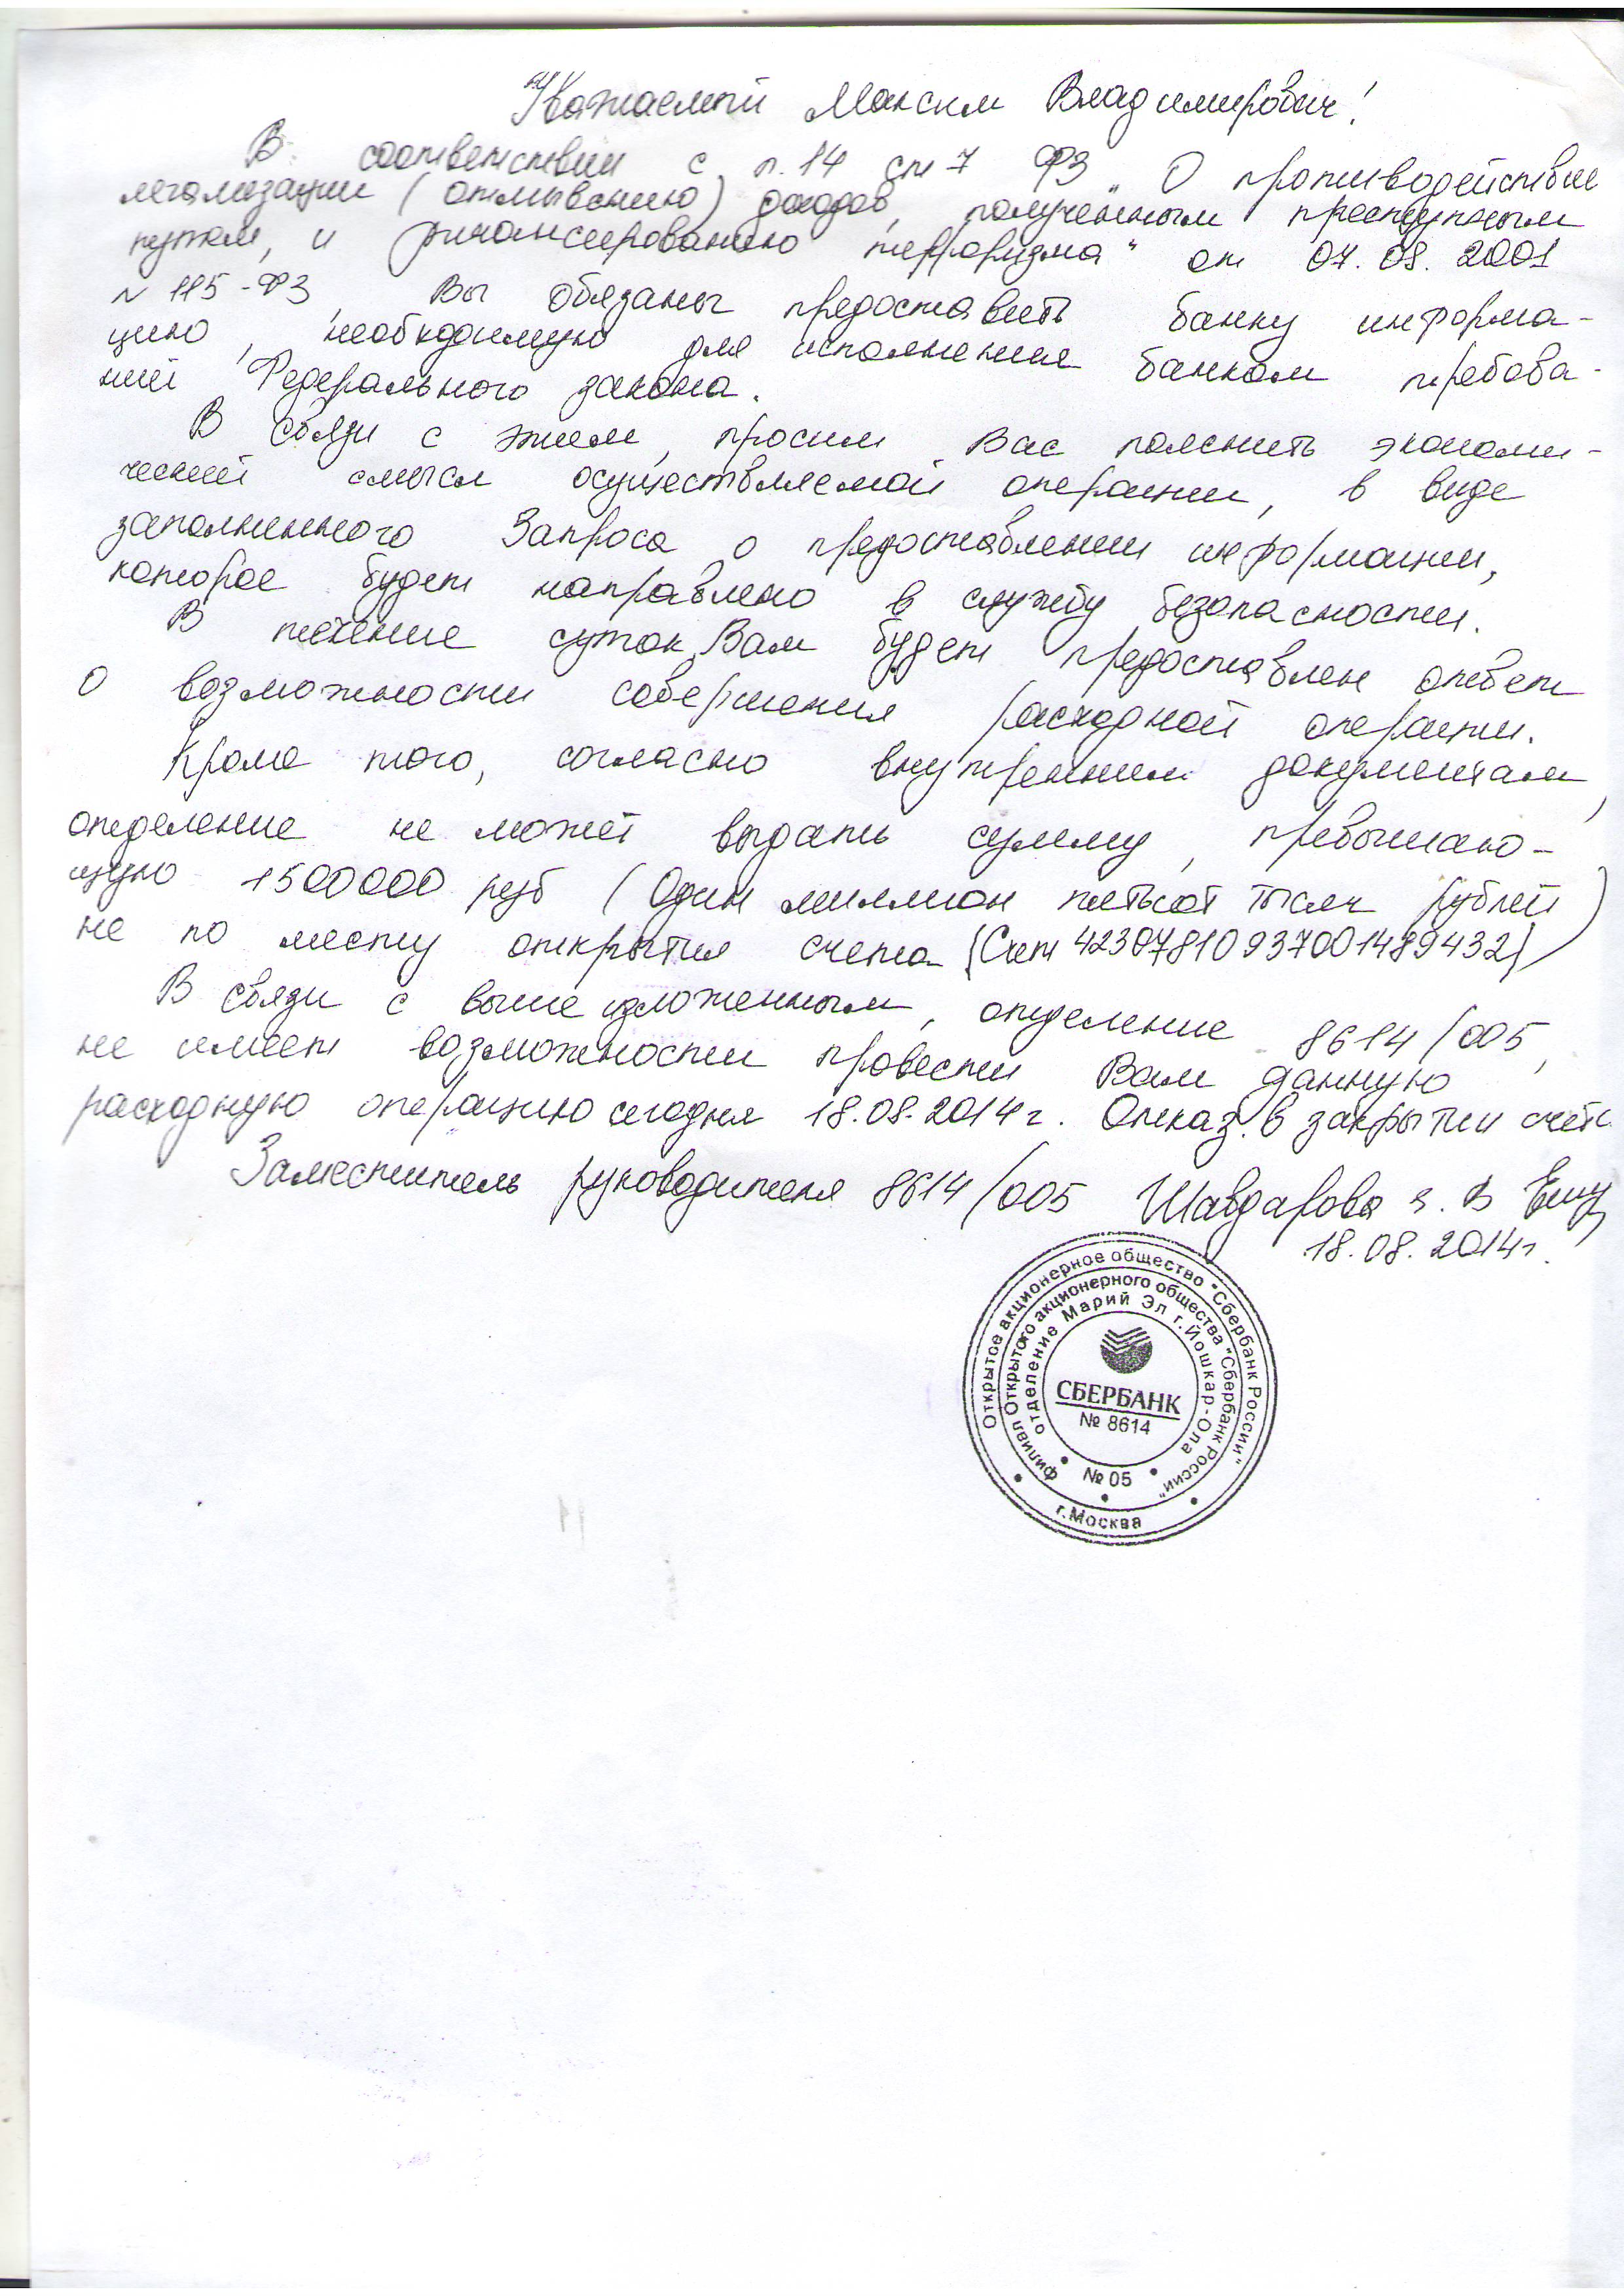 Уважаемый Максим Владимирович!
В соответствии с п.14 ст 7 ФЗ „О противодействии
легализации (отмыванию) доходов, полученным преступным
путем, и финансированию терроризма" от 07.08.2001
N 115-ФЗ, Вы обязаны предоставить банку информа-
цию, необходимую для исполнения банком требова-
ний Федерального закона.
В связи с этим, просим Вас пояснить экономи-
ческий смысл осуществляемой операции, в виде
заполненного Запроса о предоставлении информации,
которое будет направлено в службу безопасности.
В течение суток Вам будет предоставлен ответ
о возможности совершения расходной операции.
Кроме того, согласно внутренним документам,
отделение не может выдать сумму, превышаю-
щую 1500000 руб (Один миллион пятьсот тысяч рублей)
не по месту открытия счета (Счет 42307810937001489432)
В связи с выше изложенным, отделение 8614/005,
не имеет возможности провести Вам данную
расходную операцию сегодня 18.08.2014г. Отказ в закрытии счета
Заместитель руководителя 8614/005 Шавдарова З.В
18.08.2014г.
Открытое акционерное общество "Сбербанк России"
филиал Открытого акционерного общества "Сбербанк России"
отделение Марий Эл г.Йошкар-Ола
СБЕРБАНК
№ 8614
№ 05
г.Москва